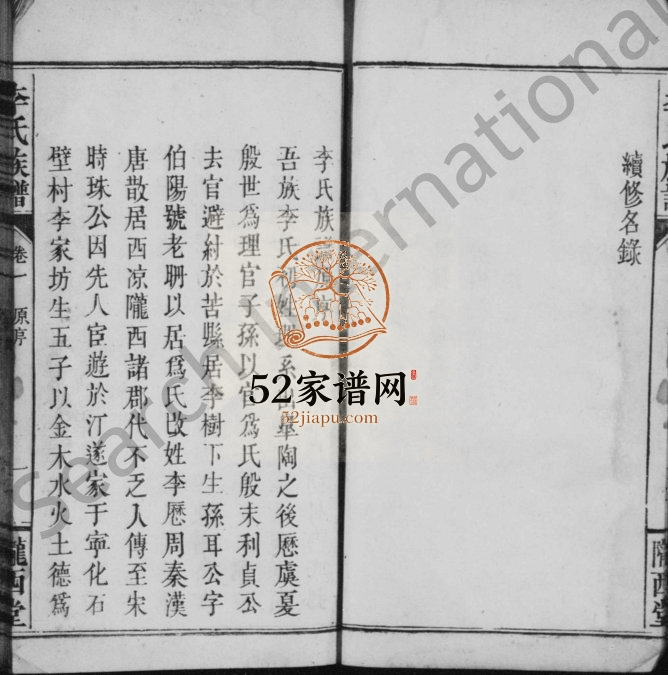 續修名錄
李氏族
吾族李氏 姓 系 陶之後歷虞夏
殷世爲理官子孫以官爲氏殷末利貞公
去官避紂於苦縣居李樹下生孫耳公字
伯陽號老聃以居爲氏改姓李歷周秦漢
唐散居西凉隴西諸郡代不乏人傳至宋
時珠公因先人宦遊於汀遂家于寧化石
壁村李家坊生五子以金木水火土德爲
李氏族譜
卷一
原序
一
隴西堂
隴西堂
52家谱网
52jiapu.com
Search International